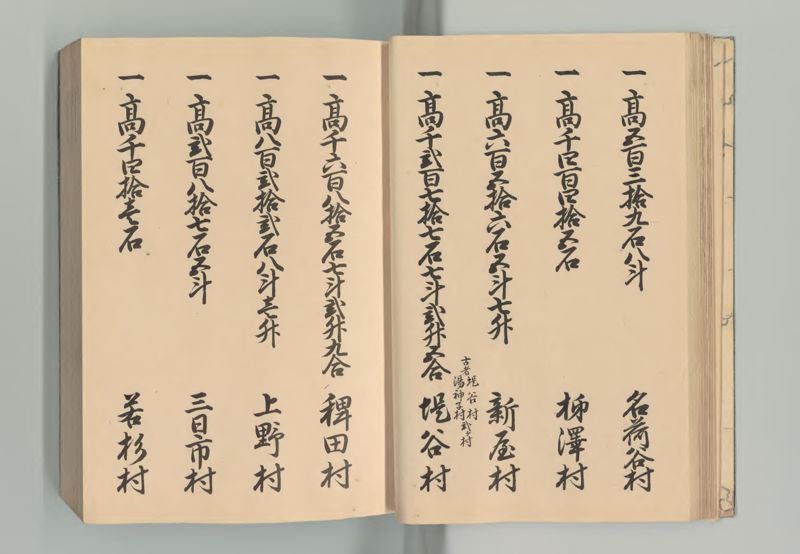 一 高五百三拾九石八斗 名荷谷村
一 高千四百四拾五石 柳澤村
一 高六百五拾六石五斗七升 新屋村
古者堤谷村
湯神子村弐ヶ村
一 高千弐百七拾七石七斗弐升五合 堤谷村
一 高千六百八拾五石七斗弐升九合 稗田村
一 高八百弐拾弐石八斗壱升 上野村
一 高弐百八拾七石五斗 三日市村
一 高千四拾壱石 若杉村